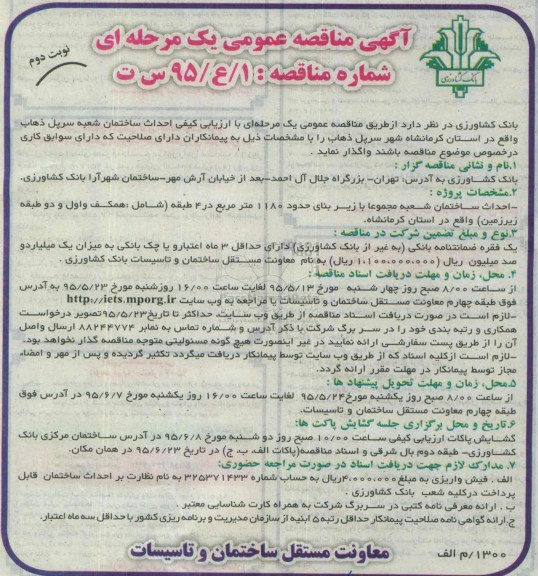 آگهی مناقصه عمومی یک مرحله ای
شماره مناقصه : ۱/ع/۹۵ س ت
نوبت دوم
بانک کشاورزی
بانک کشاورزی در نظر دارد ازطریق مناقصه عمومی یک مرحله‌ای با ارزیابی کیفی احداث ساختمان شعبه سرپل ذهاب
واقع در استان کرمانشاه شهر سرپل ذهاب را با مشخصات ذیل به پیمانکاران دارای صلاحیت که دارای سوابق کاری
درخصوص موضوع مناقصه باشند واگذار نماید .
۱.نام و نشانی مناقصه گزار :
بانک کشاورزی به آدرس: تهران- بزرگراه جلال آل احمد-بعد از خیابان آرش مهر-ساختمان شهرآرا بانک کشاورزی.
۲.مشخصات پروژه :
-احداث ساختمان شعبه مجموعا با زیر بنای حدود ۱۱۸۰ متر مربع در۴ طبقه (شامل :همکف واول و دو طبقه
زیرزمین) واقع در استان کرمانشاه.
۳.نوع و مبلغ تضمین شرکت در مناقصه :
یک فقره ضمانتنامه بانکی (به غیر از بانک کشاورزی) دارای حداقل ۳ ماه اعتبارو یا چک بانکی به میزان یک میلیاردو
صد میلیون ریال (۱،۱۰۰،۰۰۰،۰۰۰) ریال) به نام معاونت مستقل ساختمان و تاسیسات بانک کشاورزی .
۴. محل، زمان و مهلت دریافت اسناد مناقصه :
از ساعت ۸/۰۰ صبح روز چهار شنبه مورخ ۹۵/۵/۱۳ لغایت ساعت ۱۶/۰۰ روزشنبه مورخ ۹۵/۵/۲۳ به آدرس
فوق طبقه چهارم معاونت مستقل ساختمان و تاسیسات یا مراجعه به وب سایت http://iets.mporg.ir
-لازم است در صورت دریافت اسناد مناقصه از طریق وب سایت، حداکثر تا تاریخ۹۵/۵/۲۳تصویر درخواست
همکاری و رتبه بندی خود را در سر برگ شرکت با ذکر آدرس و شماره تماس به نمابر ۸۸۲۴۴۷۷۴ ارسال واصل
آن را از طریق پست سفارشی ارائه نمایید در غیر اینصورت هیچ گونه مسئولیتی متوجه مناقصه گذار نخواهد بود.
-لازم است ازکلیه اسناد که از طریق وب سایت توسط پیمانکار دریافت میگردد تکثیر گردیده و پس از مهر و امضاء
مجاز توسط پیمانکار در مهلت مقرر ارائه گردد.
۵.محل، زمان و مهلت تحویل پیشنهاد ها :
از ساعت ۸/۰۰ صبح روز یکشنبه مورخ۹۵/۵/۲۴ لغایت ساعت ۱۶/۰۰ روز یکشنبه مورخ ۹۵/۶/۷ در آدرس فوق
طبقه چهارم معاونت مستقل ساختمان و تاسیسات.
۶.تاریخ و محل برگزاری جلسه گشایش پاکت ها:
گشایش پاکات ارزیابی کیفی ساعت ۱۰/۰۰ صبح روز دو شنبه مورخ ۹۵/۶/۸ در آدرس ساختمان مرکزی بانک
کشاورزی- طبقه دوم بال شرقی و اسناد مناقصه(پاکات الف، ب، ج) در تاریخ ۹۵/۶/۲۳ در همان مکان.
۷. مدارک لازم جهت دریافت اسناد در صورت مراجعه حضوری:
الف . فیش واریزی به مبلغ۴،۰۰۰،۰۰۰ریال به حساب شماره ۳۲۵۳۷۱۴۳۳ به نام نظارت بر احداث ساختمان قابل
پرداخت درکلیه شعب بانک کشاورزی .
ب . ارائه معرفی نامه کتبی در سربرگ شرکت به همراه کارت شناسایی معتبر .
ج.ارائه گواهی نامه صلاحیت پیمانکار حداقل رتبه۵ ابنیه از سازمان مدیریت و برنامه ریزی کشور با حداقل سه ماه اعتبار.
۱۳۰۰/م الف
معاونت مستقل ساختمان و تاسیسات